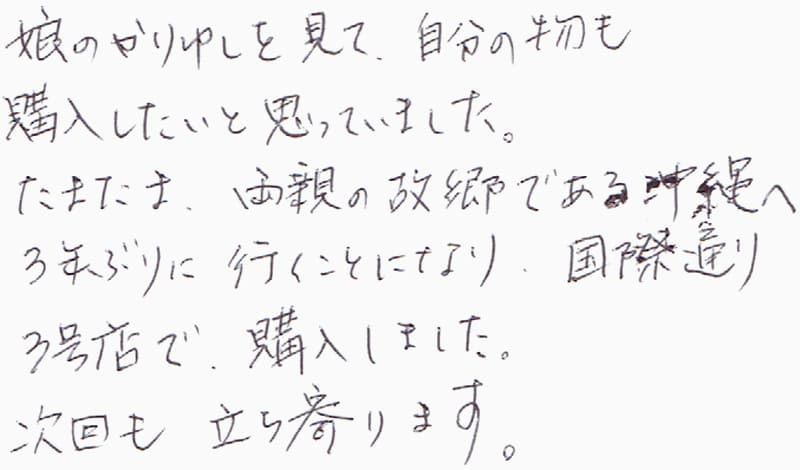 娘のかりゆしを見て、自分の物も
購入したいと思っていました。
たまたま、両親の故郷である沖縄へ
3年ぶりに行くことになり、国際通り
3号店で、購入しました。
次回も立ち寄ります。